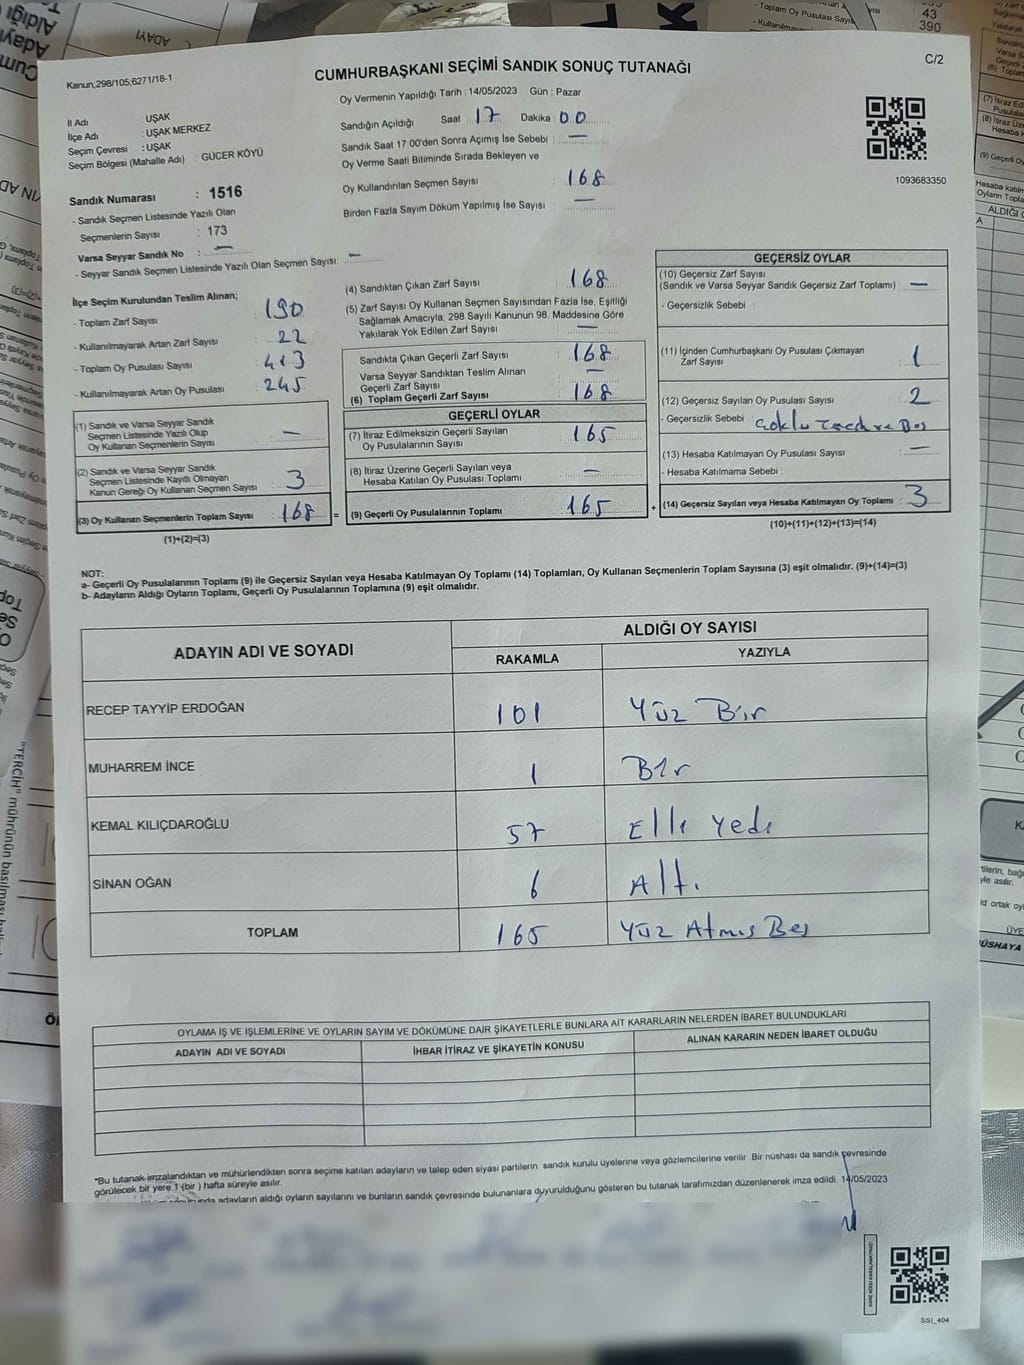 Kanun,298/105;6271/18-1
CUMHURBAŞKANI SEÇİMİ SANDIK SONUÇ TUTANAĞI
C/2
İl Adı : UŞAK
İlçe Adı : UŞAK MERKEZ
Seçim Çevresi : UŞAK
Seçim Bölgesi (Mahalle Adı) : GÜCER KÖYÜ
Sandık Numarası : 1516
- Sandık Seçmen Listesinde Yazılı Olan
Seçmenlerin Sayısı : 173
Varsa Seyyar Sandık No : —
- Seyyar Sandık Seçmen Listesinde Yazılı Olan Seçmen Sayısı: —
Oy Vermenin Yapıldığı Tarih : 14/05/2023 Gün : Pazar
Sandığın Açıldığı Saat : 17 Dakika : 00
Sandık Saat 17:00'den Sonra Açımış İse Sebebi : —
Oy Verme Saati Bitiminde Sırada Bekleyen ve
Oy Kullandırılan Seçmen Sayısı : 168
Birden Fazla Sayım Döküm Yapılmış İse Sayısı : —
1093683350
İlçe Seçim Kurulundan Teslim Alınan;
- Toplam Zarf Sayısı : 190
- Kullanılmayarak Artan Zarf Sayısı : 22
- Toplam Oy Pusulası Sayısı : 413
- Kullanılmayarak Artan Oy Pusulası : 245
(1) Sandık ve Varsa Seyyar Sandık
Seçmen Listesinde Yazılı Olup
Oy Kullanan Seçmenlerin Sayısı : —
(2) Sandık ve Varsa Seyyar Sandık
Seçmen Listesinde Kayıtlı Olmayan
Kanun Gereği Oy Kullanan Seçmen Sayısı : 3
(3) Oy Kullanan Seçmenlerin Toplam Sayısı : 168
(1)+(2)=(3)
(4) Sandıktan Çıkan Zarf Sayısı : 168
(5) Zarf Sayısı Oy Kullanan Seçmen Sayısından Fazla İse, Eşitliği
Sağlamak Amacıyla; 298 Sayılı Kanunun 98. Maddesine Göre
Yakılarak Yok Edilen Zarf Sayısı : —
Sandıkta Çıkan Geçerli Zarf Sayısı : 168
Varsa Seyyar Sandıktan Teslim Alınan
Geçerli Zarf Sayısı : —
(6) Toplam Geçerli Zarf Sayısı : 168
GEÇERLİ OYLAR
(7) İtiraz Edilmeksizin Geçerli Sayılan
Oy Pusulalarının Sayısı : 165
(8) İtiraz Üzerine Geçerli Sayılan veya
Hesaba Katılan Oy Pusulası Toplamı : —
= (9) Geçerli Oy Pusulalarının Toplamı : 165 +
GEÇERSİZ OYLAR
(10) Geçersiz Zarf Sayısı
(Sandık ve Varsa Seyyar Sandık Geçersiz Zarf Toplamı) : —
- Geçersizlik Sebebi :
(11) İçinden Cumhurbaşkanı Oy Pusulası Çıkmayan
Zarf Sayısı : 1
(12) Geçersiz Sayılan Oy Pusulası Sayısı : 2
- Geçersizlik Sebebi : Çoklu Tercih ve Boş
(13) Hesaba Katılmayan Oy Pusulası Sayısı : —
- Hesaba Katılmama Sebebi :
(14) Geçersiz Sayılan veya Hesaba Katılmayan Oy Toplamı : 3
(10)+(11)+(12)+(13)=(14)
NOT:
a- Geçerli Oy Pusulalarının Toplamı (9) ile Geçersiz Sayılan veya Hesaba Katılmayan Oy Toplamı (14) Toplamları, Oy Kullanan Seçmenlerin Toplam Sayısına (3) eşit olmalıdır. (9)+(14)=(3)
b- Adayların Aldığı Oyların Toplamı, Geçerli Oy Pusulalarının Toplamına (9) eşit olmalıdır.
ADAYIN ADI VE SOYADI
ALDIĞI OY SAYISI
RAKAMLA YAZIYLA
RECEP TAYYİP ERDOĞAN 101 Yüz Bir
MUHARREM İNCE 1 Bir
KEMAL KILIÇDAROĞLU 57 Elli Yedi
SİNAN OĞAN 6 Altı
TOPLAM 165 Yüz Atmış Beş
OYLAMA İŞ VE İŞLEMLERİNE VE OYLARIN SAYIM VE DÖKÜMÜNE DAİR ŞİKAYETLERLE BUNLARA AİT KARARLARIN NELERDEN İBARET BULUNDUKLARI
ADAYIN ADI VE SOYADI İHBAR İTİRAZ VE ŞİKAYETİN KONUSU ALINAN KARARIN NEDEN İBARET OLDUĞU
*Bu tutanak imzalandıktan ve mühürlendikten sonra seçime katılan adayların ve talep eden siyasi partilerin sandık kurulu üyelerine veya gözlemcilerine verilir .Bir nüshası da sandık çevresinde
görülecek bir yere 1 (bir ) hafta süreyle asılır.
adayların aldığı oyların sayılarını ve bunların sandık çevresinde bulunanlara duyurulduğunu gösteren bu tutanak tarafımızdan düzenlenerek imza edildi. 14/05/2023
SSI_404